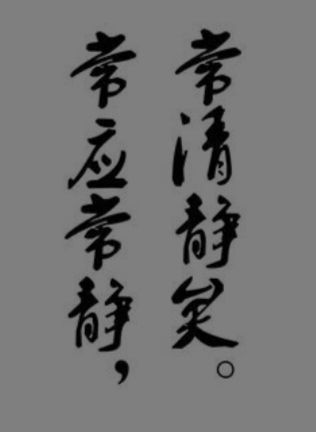 常应常静，
常清静矣。